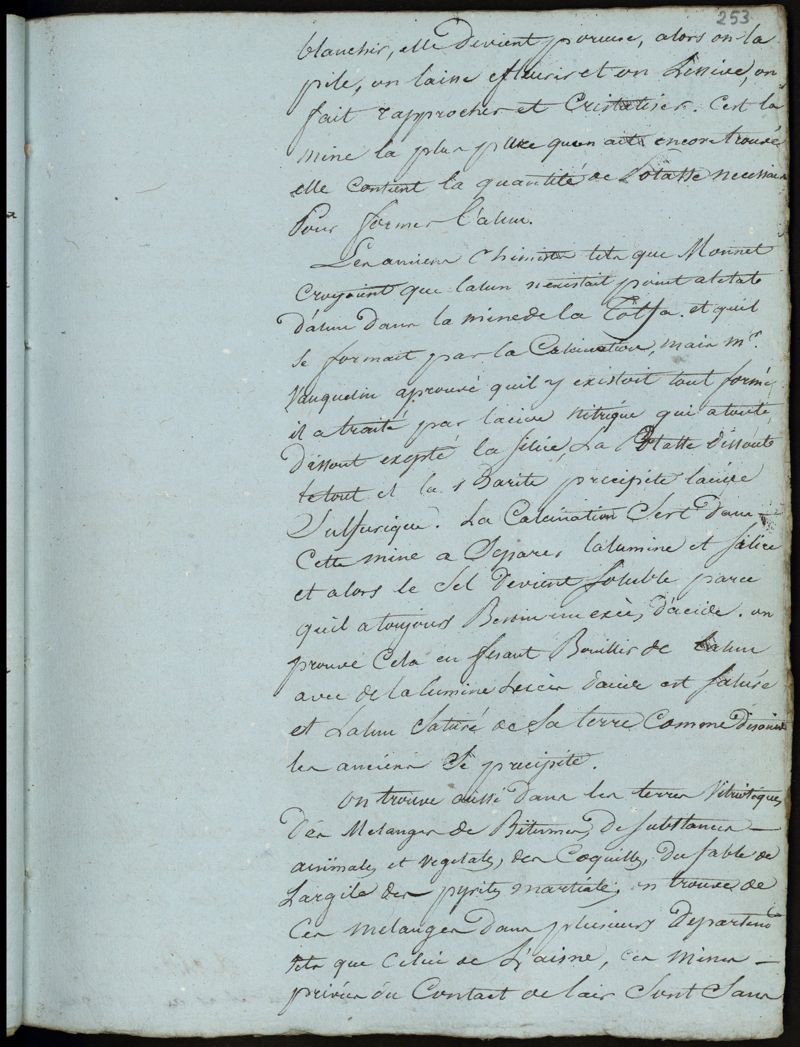 253
blanchir, elle devient poreuse, alors on la
pile, on laisse efleurir et on Lessive, on
fait rapprocher et Cristaliser. C'est la
mine la plus pure qu'on ait encore trouvé
elle contient la quantité de Potasse necessaire
Pour former l'alun.
Les anciens Chimistes tels que Monnet
Croyoient que lalun nexistait point a letat
d'alun dans la mine de la Tolfa. et quil
se formait par la Calcination, mais mr.
Vauquelin a prouvé quil y existoit tout formé,
il a traité par lacide nitrique qui a toute
dissout exepté la silice, La Potasse dissoute
le tout et la Barite precipite lacide
Sulfurique. La Calcination Sert dans
Cette mine a Separer lalumine et silice
et alors le Sel devient soluble parce
quil a toujours Besoin un exès d'acide. on
prouve Cela en fesant Bouillir de lalun
avec de lalumine Lexcès dacide est saturé
et Lalun saturé de Sa terre Comme disoient
les anciens Se precipite.
On trouve aussi dans les terres Vitrioliques
des Melanges de Bitumes, de substances
animales et vegetales, des Coquilles, du sable de
Largile des pyrites martiales, on trouve de
Ces melanges dans plusieurs Departemts
tels que Celui de L'aisne, ces mines
privées du Contact de lair Sont Sans